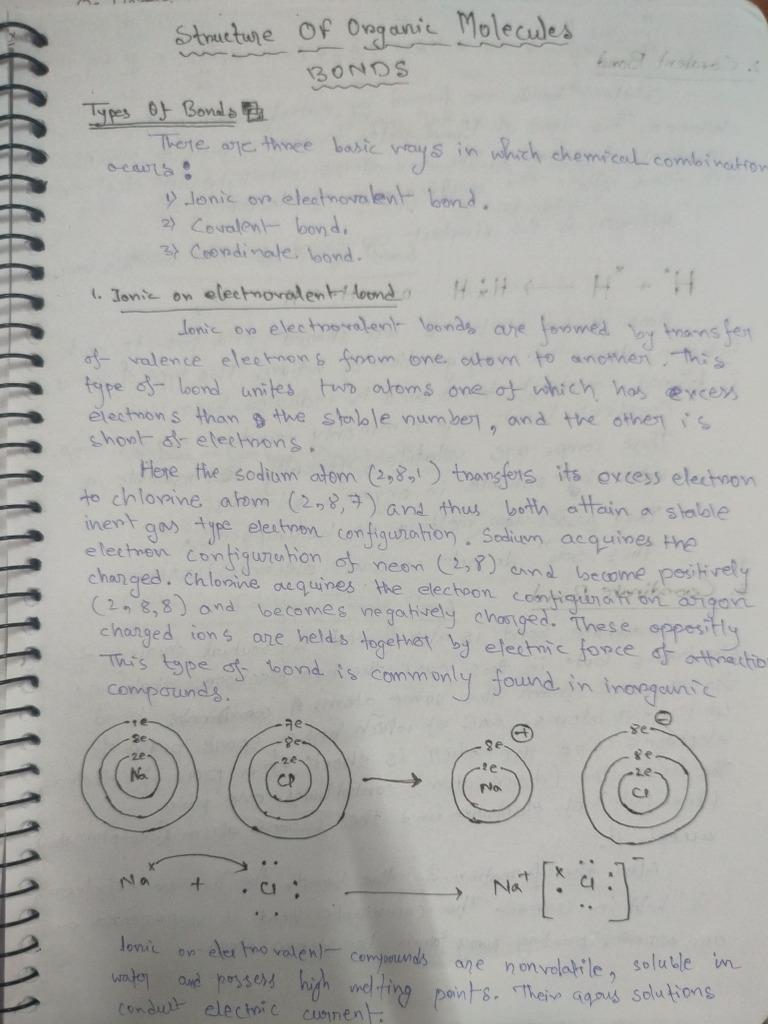 Structure Of Organic Molecules
BONDS
Types Of Bonds
There are three basic ways in which chemical combination
ocars:
1) Ionic or electrovalent bond.
2) Covalent bond.
3) Coordinate bond.
1. Ionic or electrovalent bond
Ionic or electrovalent bonds are formed by transfer
of valence electrons from one atom to another. This
type of bond unites two atoms one of which has excess
electrons than the stable number, and the other is
short of electrons.
Here the sodium atom (2,8,1) transfers its excess electron
to chlorine atom (2,8,7) and thus both attain a stable
inert gas type electron configuration. Sodium acquires the
electron configuration of neon (2,8) and become positively
charged. Chlorine acquires the electron configuration argon
(2,8,8) and becomes negatively charged. These oppositly
charged ions are helds together by electric force of attractio
This type of bond is commonly found in inorganic
compounds.
1e 8e 2e Na 7e 8e 2e Cl → 8e 2e Na + 8e 8e 2e Cl −
Na + Cl → Na+ [Cl]−
Ionic or electrovalent compounds are nonvolatile, soluble in
water and possess high melting points. Their aqous solutions
conduct electric current.